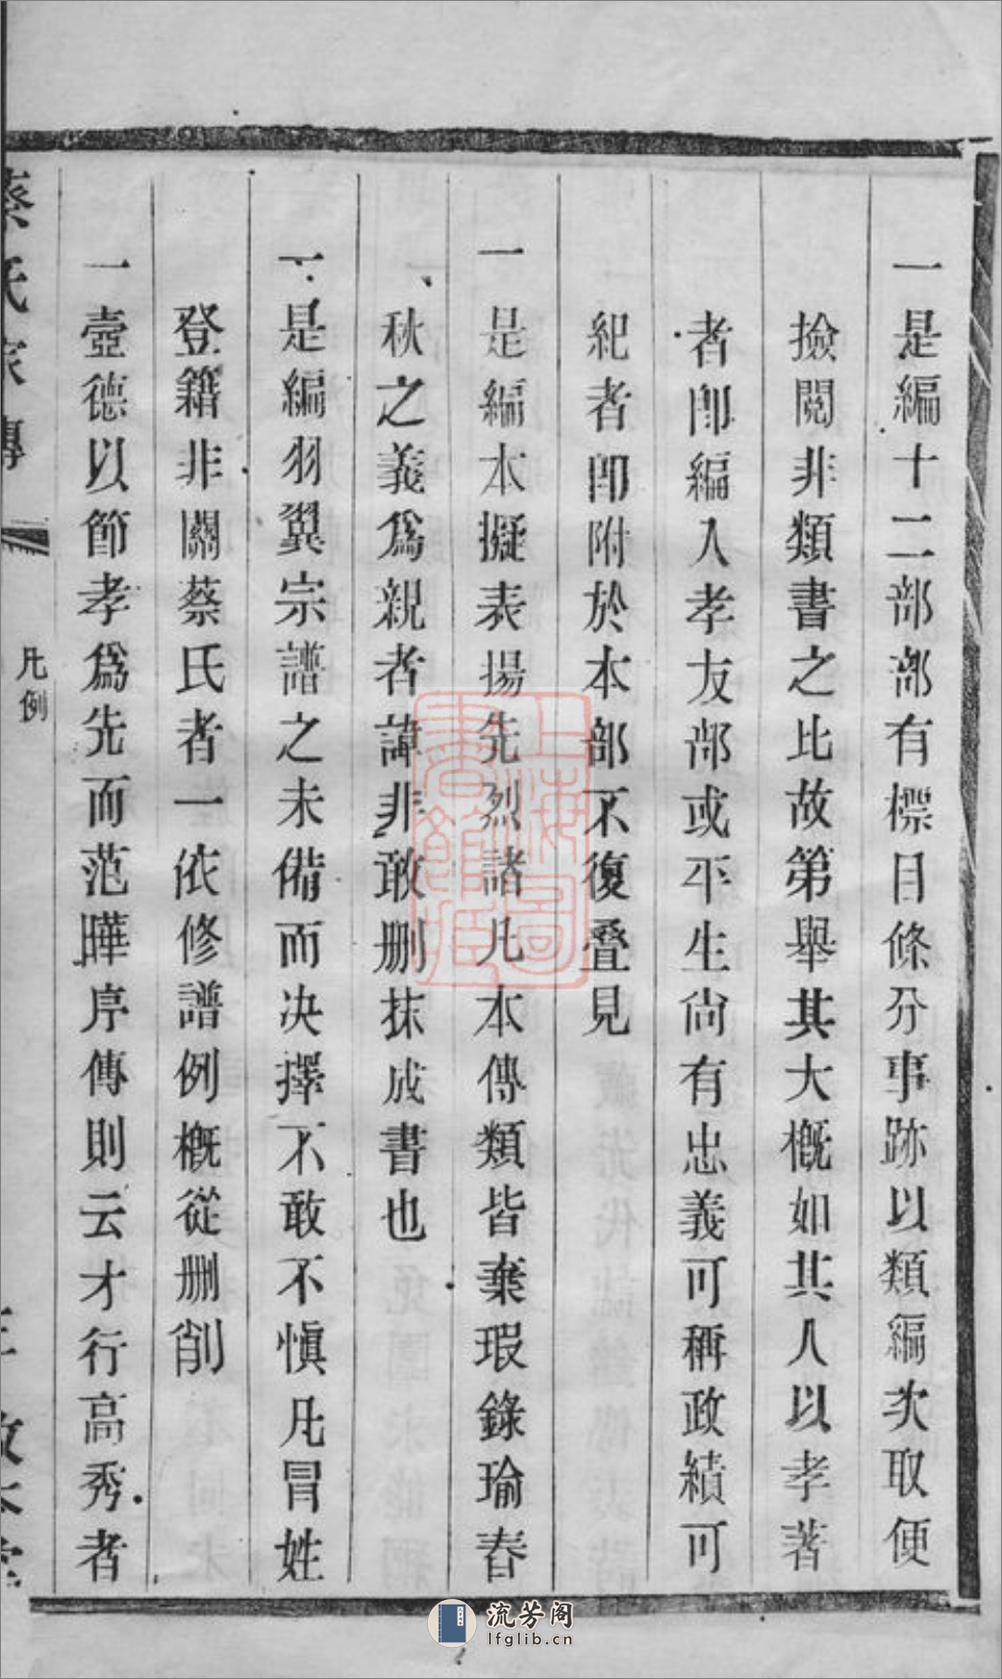 一是編十二部部有標目條分事跡以類編次取便
撿閱非類書之比故第舉其大概如其人以孝著
者卽編入孝友部或平生尚有忠義可稱政績可
紀者卽附於本部不復疊見
一是編本擬表揚先烈諸凡本傳類皆棄瑕錄瑜春
秋之義爲親者諱非敢刪抹成書也
一是編羽翼宗譜之未備而决擇不敢不愼凡冒姓
登籍非關蔡氏者一依修譜例槪從刪削
一壼德以節孝爲先而范曄序傳則云才行高秀者
蔡氏家傳
凡例
上海圖書館藏
流芳阁
lfglib.cn